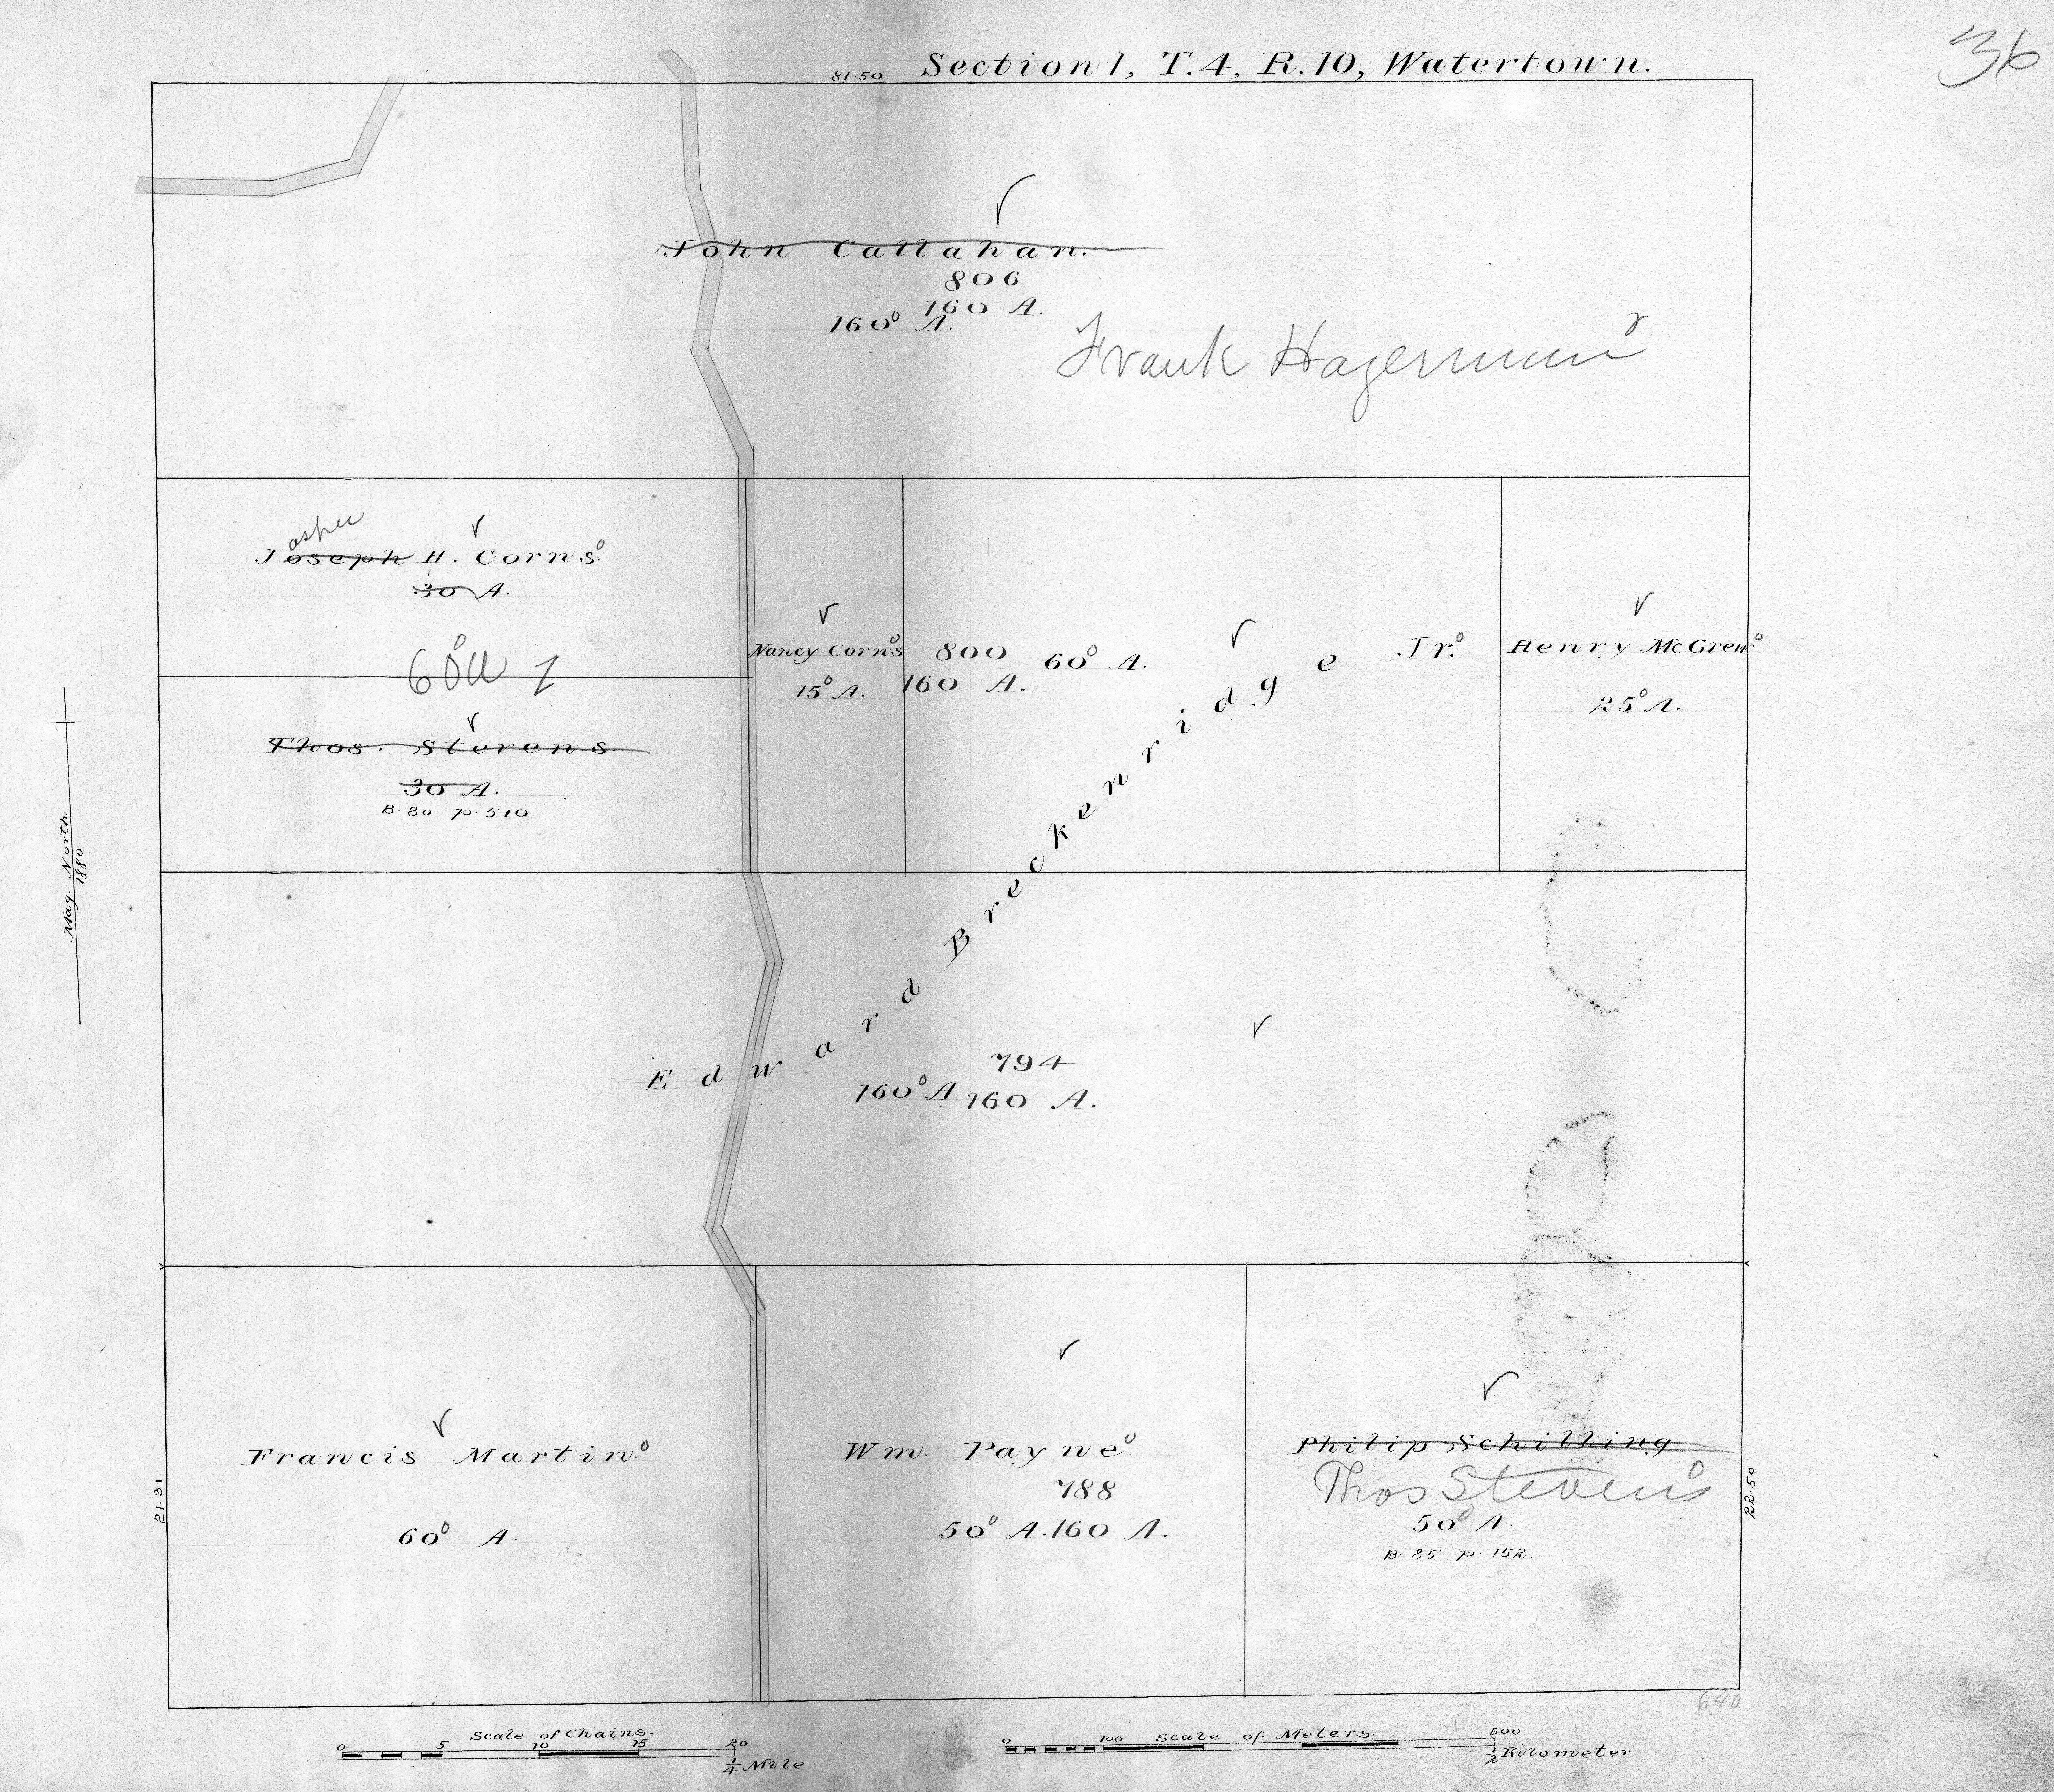 36
81.50 Section 1, T. 4, R. 10, Watertown.
John Callahan.
806
160 A.
160° A.
Frank Hagerman
asper
Joseph H. Corns.
30 A.
60 a 1
Thos. Stevens
30 A.
B. 80 p. 510
Nancy Corns
15° A.
800
160 A.
60° A.
Edward Breckenridge Jr.
Henry McGrew
25° A.
Mag. North
1880
794
160° A. 160 A.
Francis Martin.
60° A.
Wm. Payne.
788
50° A. 160 A.
Philip Schilling
Thos Stevens
50° A.
B. 85 p. 152.
21.31
22.50
640
Scale of Chains.
0 5 10 15 20
1/4 Mile
Scale of Meters.
0 100 500
1/2 Kilometer